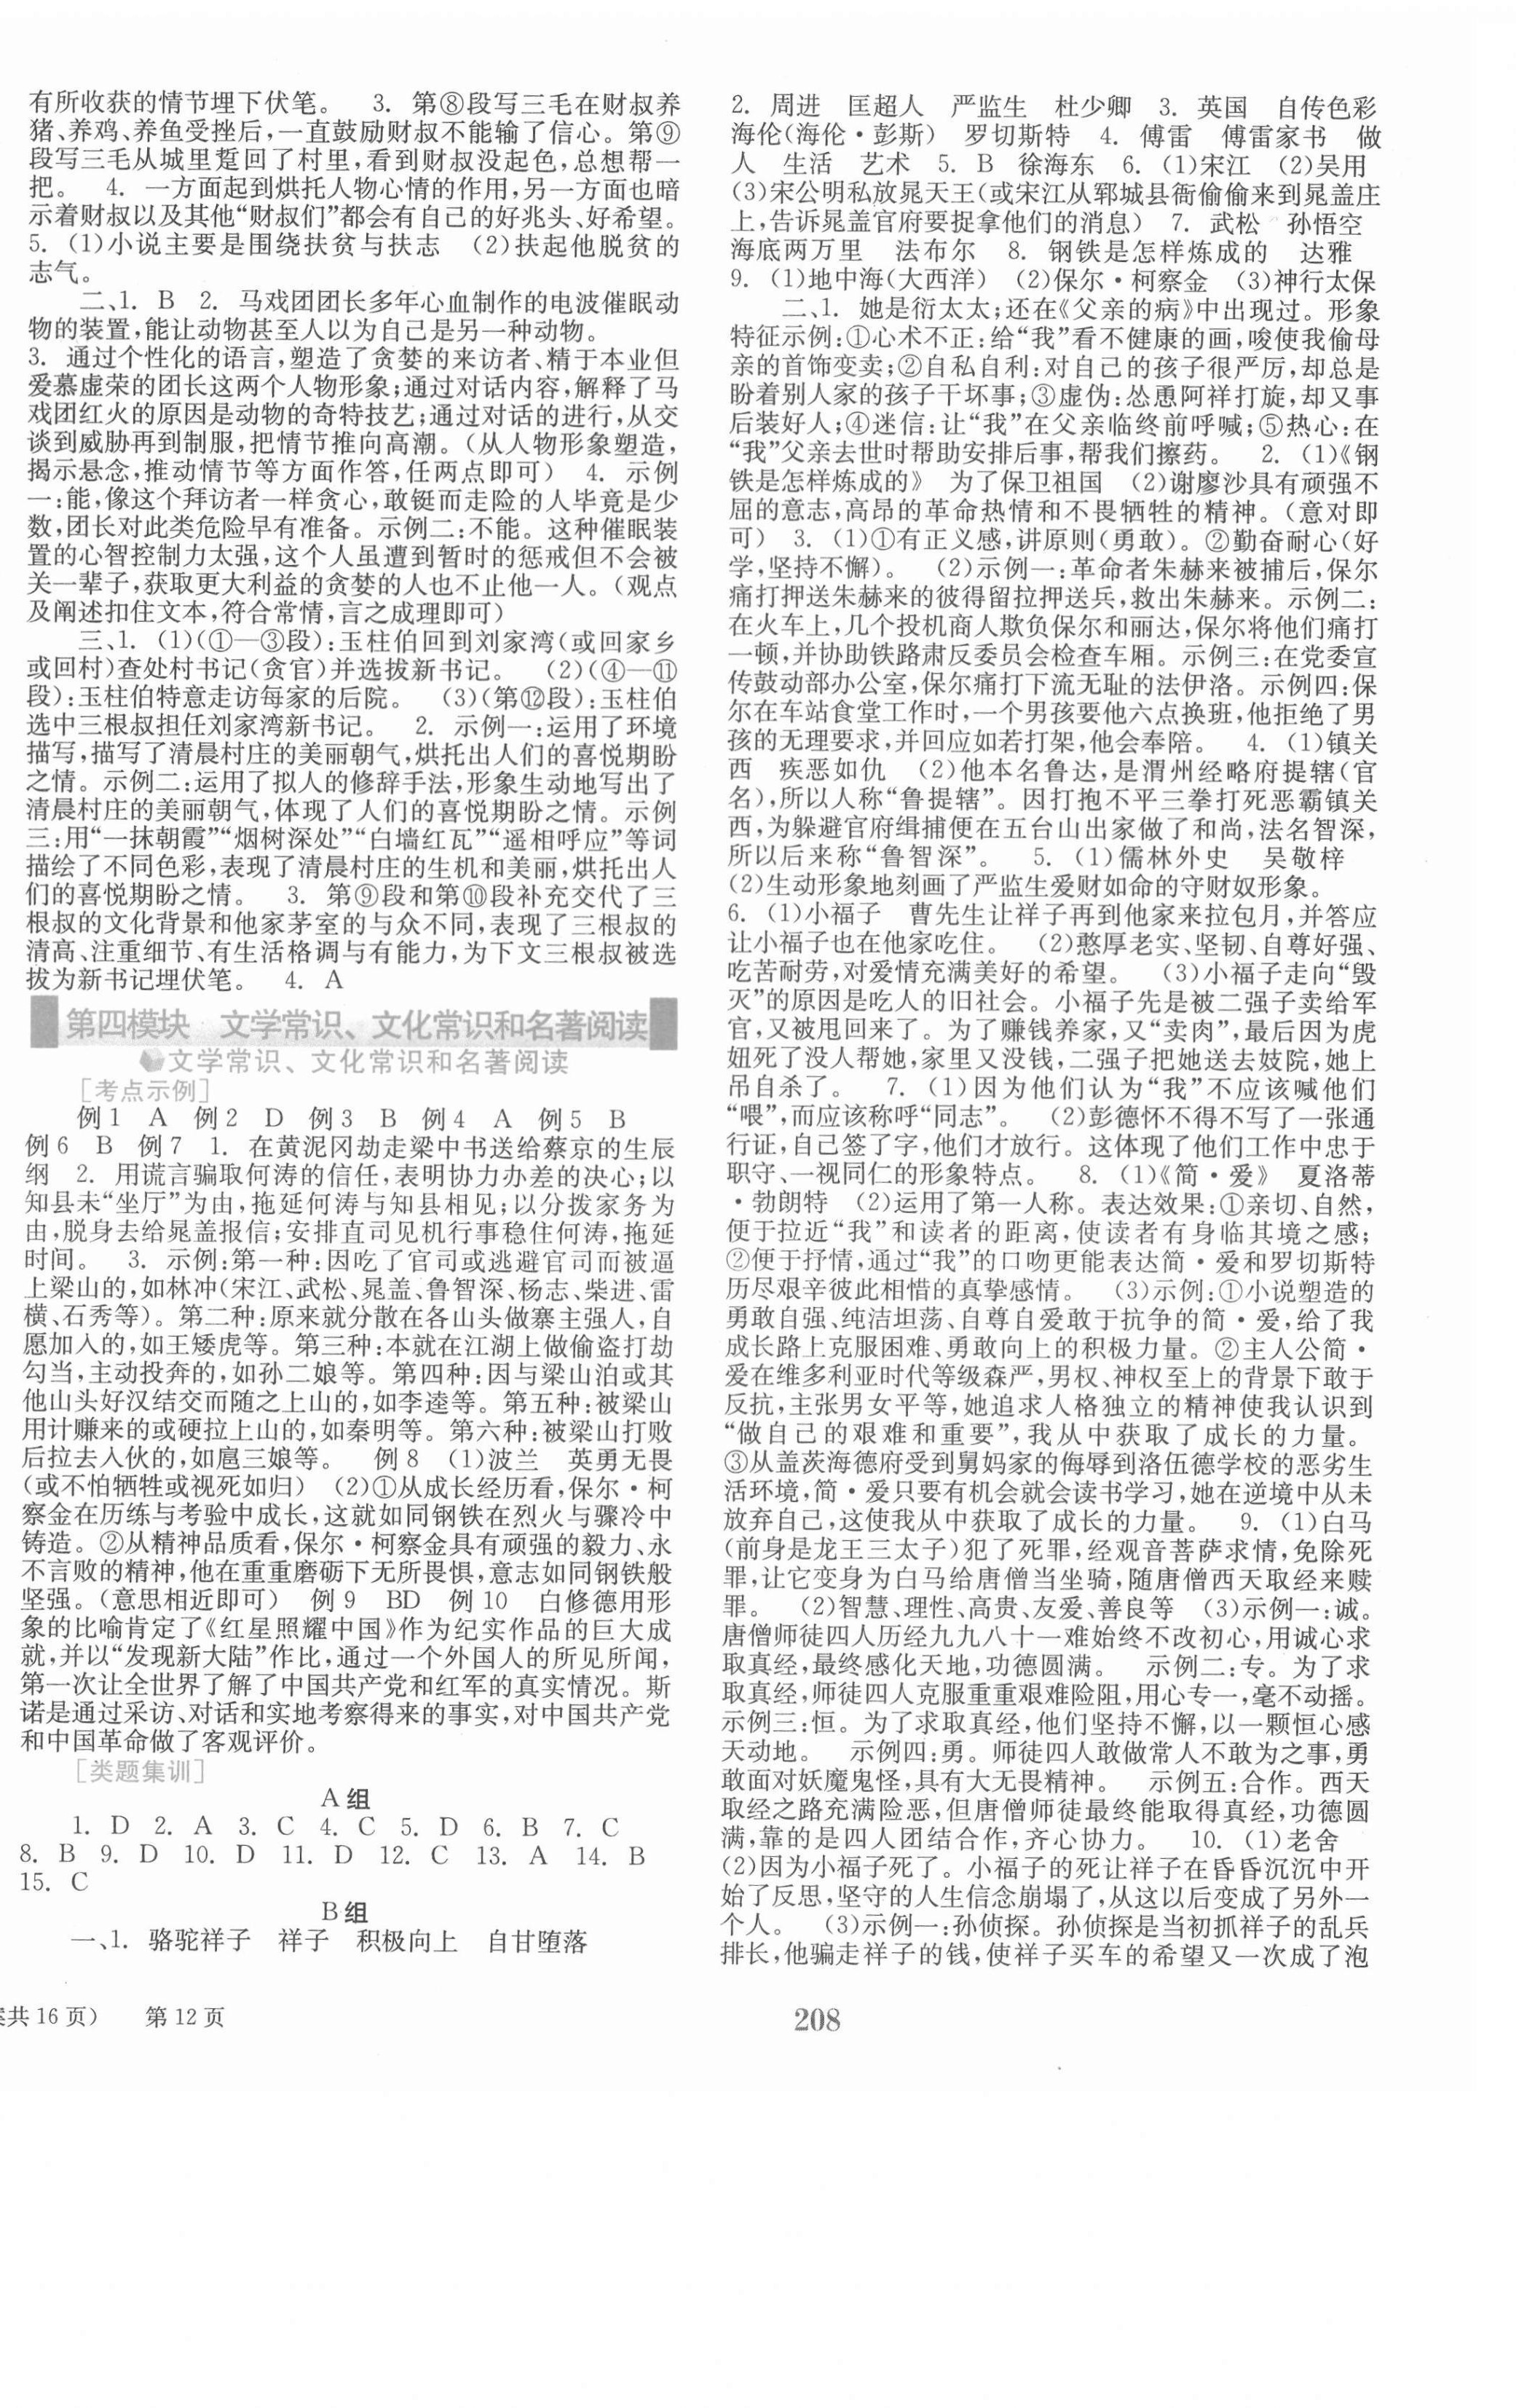 有所收获的情节埋下伏笔。　3. 第⑧段写三毛在财叔养
猪、养鸡、养鱼受挫后,一直鼓励财叔不能输了信心。第⑨
段写三毛从城里踅回了村里,看到财叔没起色,总想帮一
把。　4. 一方面起到烘托人物心情的作用,另一方面也暗
示着财叔以及其他“财叔们”都会有自己的好兆头、好希望。
5. (1)小说主要是围绕扶贫与扶志　(2)扶起他脱贫的
志气。
二、1. B　2. 马戏团团长多年心血制作的电波催眠动
物的装置,能让动物甚至人以为自己是另一种动物。
3. 通过个性化的语言,塑造了贪婪的来访者、精于本业但
爱慕虚荣的团长这两个人物形象;通过对话内容,解释了马
戏团红火的原因是动物的奇特技艺;通过对话的进行,从交
谈到威胁再到制服,把情节推向高潮。(从人物形象塑造,
揭示悬念,推动情节等方面作答,任两点即可)　4. 示例
一:能,像这个拜访者一样贪心,敢铤而走险的人毕竟是少
数,团长对此类危险早有准备。示例二:不能。这种催眠装
置的心智控制力太强,这个人虽遭到暂时的惩戒但不会被
关一辈子,获取更大利益的贪婪的人也不止他一人。(观点
及阐述扣住文本,符合常情,言之成理即可)
三、1. (1)(①—③段):玉柱伯回到刘家湾(或回家乡
或回村)查处村书记(贪官)并选拔新书记。　(2)(④—⑪
段):玉柱伯特意走访每家的后院。　(3)(第⑫段):玉柱伯
选中三根叔担任刘家湾新书记。　2. 示例一:运用了环境
描写,描写了清晨村庄的美丽朝气,烘托出人们的喜悦期盼
之情。示例二:运用了拟人的修辞手法,形象生动地写出了
清晨村庄的美丽朝气,体现了人们的喜悦期盼之情。示例
三:用“一抹朝霞”“烟树深处”“白墙红瓦”“遥相呼应”等词
描绘了不同色彩,表现了清晨村庄的生机和美丽,烘托出人
们的喜悦期盼之情。　3. 第⑨段和第⑩段补充交代了三
根叔的文化背景和他家茅室的与众不同,表现了三根叔的
清高、注重细节、有生活格调与有能力,为下文三根叔被选
拔为新书记埋伏笔。　4. A
第四模块　文学常识、文化常识和名著阅读
文学常识、文化常识和名著阅读
[考点示例]
例1　A　例2　D　例3　B　例4　A　例5　B
例6　B　例7　1. 在黄泥冈劫走梁中书送给蔡京的生辰
纲　2. 用谎言骗取何涛的信任,表明协力办差的决心;以
知县未“坐厅”为由,拖延何涛与知县相见;以分拨家务为
由,脱身去给晁盖报信;安排直司见机行事稳住何涛,拖延
时间。　3. 示例:第一种:因吃了官司或逃避官司而被逼
上梁山的,如林冲(宋江、武松、晁盖、鲁智深、杨志、柴进、雷
横、石秀等)。第二种:原来就分散在各山头做寨主强人,自
愿加入的,如王矮虎等。第三种:本就在江湖上做偷盗打劫
勾当,主动投奔的,如孙二娘等。第四种:因与梁山泊或其
他山头好汉结交而随之上山的,如李逵等。第五种:被梁山
用计赚来的或硬拉上山的,如秦明等。第六种:被梁山打败
后拉去入伙的,如扈三娘等。　例8　(1)波兰　英勇无畏
(或不怕牺牲或视死如归)　(2)①从成长经历看,保尔·柯
察金在历练与考验中成长,这就如同钢铁在烈火与骤冷中
铸造。②从精神品质看,保尔·柯察金具有顽强的毅力、永
不言败的精神,他在重重磨砺下无所畏惧,意志如同钢铁般
坚强。(意思相近即可)　例9　BD　例10　白修德用形
象的比喻肯定了《红星照耀中国》作为纪实作品的巨大成
就,并以“发现新大陆”作比,通过一个外国人的所见所闻,
第一次让全世界了解了中国共产党和红军的真实情况。斯
诺是通过采访、对话和实地考察得来的事实,对中国共产党
和中国革命做了客观评价。
[类题集训]
A组
1. D　2. A　3. C　4. C　5. D　6. B　7. C
8. B　9. D　10. D　11. D　12. C　13. A　14. B
15. C
B组
一、1. 骆驼祥子　祥子　积极向上　自甘堕落
案共16页)　第12页
2. 周进　匡超人　严监生　杜少卿　3. 英国　自传色彩
海伦(海伦·彭斯)　罗切斯特　4. 傅雷　傅雷家书　做
人　生活　艺术　5. B　徐海东　6. (1)宋江　(2)吴用
(3)宋公明私放晁天王(或宋江从郓城县衙偷偷来到晁盖庄
上,告诉晁盖官府要捉拿他们的消息)　7. 武松　孙悟空
海底两万里　法布尔　8. 钢铁是怎样炼成的　达雅
9. (1)地中海(大西洋)　(2)保尔·柯察金　(3)神行太保
二、1. 她是衍太太;还在《父亲的病》中出现过。形象
特征示例:①心术不正:给“我”看不健康的画,唆使我偷母
亲的首饰变卖;②自私自利:对自己的孩子很严厉,却总是
盼着别人家的孩子干坏事;③虚伪:怂恿阿祥打旋,却又事
后装好人;④迷信:让“我”在父亲临终前呼喊;⑤热心:在
“我”父亲去世时帮助安排后事,帮我们擦药。　2. (1)《钢
铁是怎样炼成的》　为了保卫祖国　(2)谢廖沙具有顽强不
屈的意志,高昂的革命热情和不畏牺牲的精神。(意对即
可)　3. (1)①有正义感,讲原则(勇敢)。②勤奋耐心(好
学,坚持不懈)。　(2)示例一:革命者朱赫来被捕后,保尔
痛打押送朱赫来的彼得留拉押送兵,救出朱赫来。示例二:
在火车上,几个投机商人欺负保尔和丽达,保尔将他们痛打
一顿,并协助铁路肃反委员会检查车厢。示例三:在党委宣
传鼓动部办公室,保尔痛打下流无耻的法伊洛。示例四:保
尔在车站食堂工作时,一个男孩要他六点换班,他拒绝了男
孩的无理要求,并回应如若打架,他会奉陪。　4. (1)镇关
西　疾恶如仇　(2)他本名鲁达,是渭州经略府提辖(官
名),所以人称“鲁提辖”。因打抱不平三拳打死恶霸镇关
西,为躲避官府缉捕便在五台山出家做了和尚,法名智深,
所以后来称“鲁智深”。　5. (1)儒林外史　吴敬梓
(2)生动形象地刻画了严监生爱财如命的守财奴形象。
6. (1)小福子　曹先生让祥子再到他家来拉包月,并答应
让小福子也在他家吃住。　(2)憨厚老实、坚韧、自尊好强、
吃苦耐劳,对爱情充满美好的希望。　(3)小福子走向“毁
灭”的原因是吃人的旧社会。小福子先是被二强子卖给军
官,又被甩回来了。为了赚钱养家,又“卖肉”,最后因为虎
妞死了没人帮她,家里又没钱,二强子把她送去妓院,她上
吊自杀了。　7. (1)因为他们认为“我”不应该喊他们
“喂”,而应该称呼“同志”。　(2)彭德怀不得不写了一张通
行证,自己签了字,他们才放行。这体现了他们工作中忠于
职守、一视同仁的形象特点。　8. (1)《简·爱》　夏洛蒂
·勃朗特　(2)运用了第一人称。表达效果:①亲切、自然,
便于拉近“我”和读者的距离,使读者有身临其境之感;
②便于抒情,通过“我”的口吻更能表达简·爱和罗切斯特
历尽艰辛彼此相惜的真挚感情。　(3)示例:①小说塑造的
勇敢自强、纯洁坦荡、自尊自爱敢于抗争的简·爱,给了我
成长路上克服困难、勇敢向上的积极力量。②主人公简·
爱在维多利亚时代等级森严,男权、神权至上的背景下敢于
反抗,主张男女平等,她追求人格独立的精神使我认识到
“做自己的艰难和重要”,我从中获取了成长的力量。
③从盖茨海德府受到舅妈家的侮辱到洛伍德学校的恶劣生
活环境,简·爱只要有机会就会读书学习,她在逆境中从未
放弃自己,这使我从中获取了成长的力量。　9. (1)白马
(前身是龙王三太子)犯了死罪,经观音菩萨求情,免除死
罪,让它变身为白马给唐僧当坐骑,随唐僧西天取经来赎
罪。　(2)智慧、理性、高贵、友爱、善良等　(3)示例一:诚。
唐僧师徒四人历经九九八十一难始终不改初心,用诚心求
取真经,最终感化天地,功德圆满。　示例二:专。为了求
取真经,师徒四人克服重重艰难险阻,用心专一,毫不动摇。
示例三:恒。为了求取真经,他们坚持不懈,以一颗恒心感
天动地。　示例四:勇。师徒四人敢做常人不敢为之事,勇
敢面对妖魔鬼怪,具有大无畏精神。　示例五:合作。西天
取经之路充满险恶,但唐僧师徒最终能取得真经,功德圆
满,靠的是四人团结合作,齐心协力。　10. (1)老舍
(2)因为小福子死了。小福子的死让祥子在昏昏沉沉中开
始了反思,坚守的人生信念崩塌了,从这以后变成了另外一
个人。　(3)示例一:孙侦探。孙侦探是当初抓祥子的乱兵
排长,他骗走祥子的钱,使祥子买车的希望又一次成了泡
208